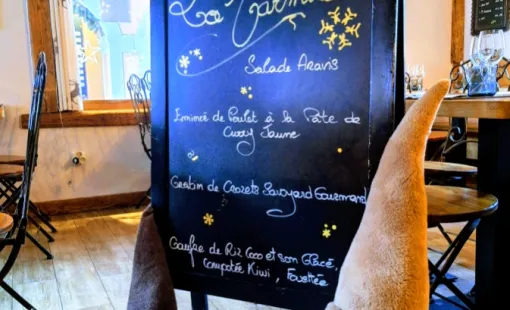 La
Salade Aravis
Emincé de Poulet à la Pâte de
Curry Jaune
Gratin de Crozets Savoyard Gourmand
Gaufre de Riz Coco et son Glacé,
Compotée Kiwi, Fouettée